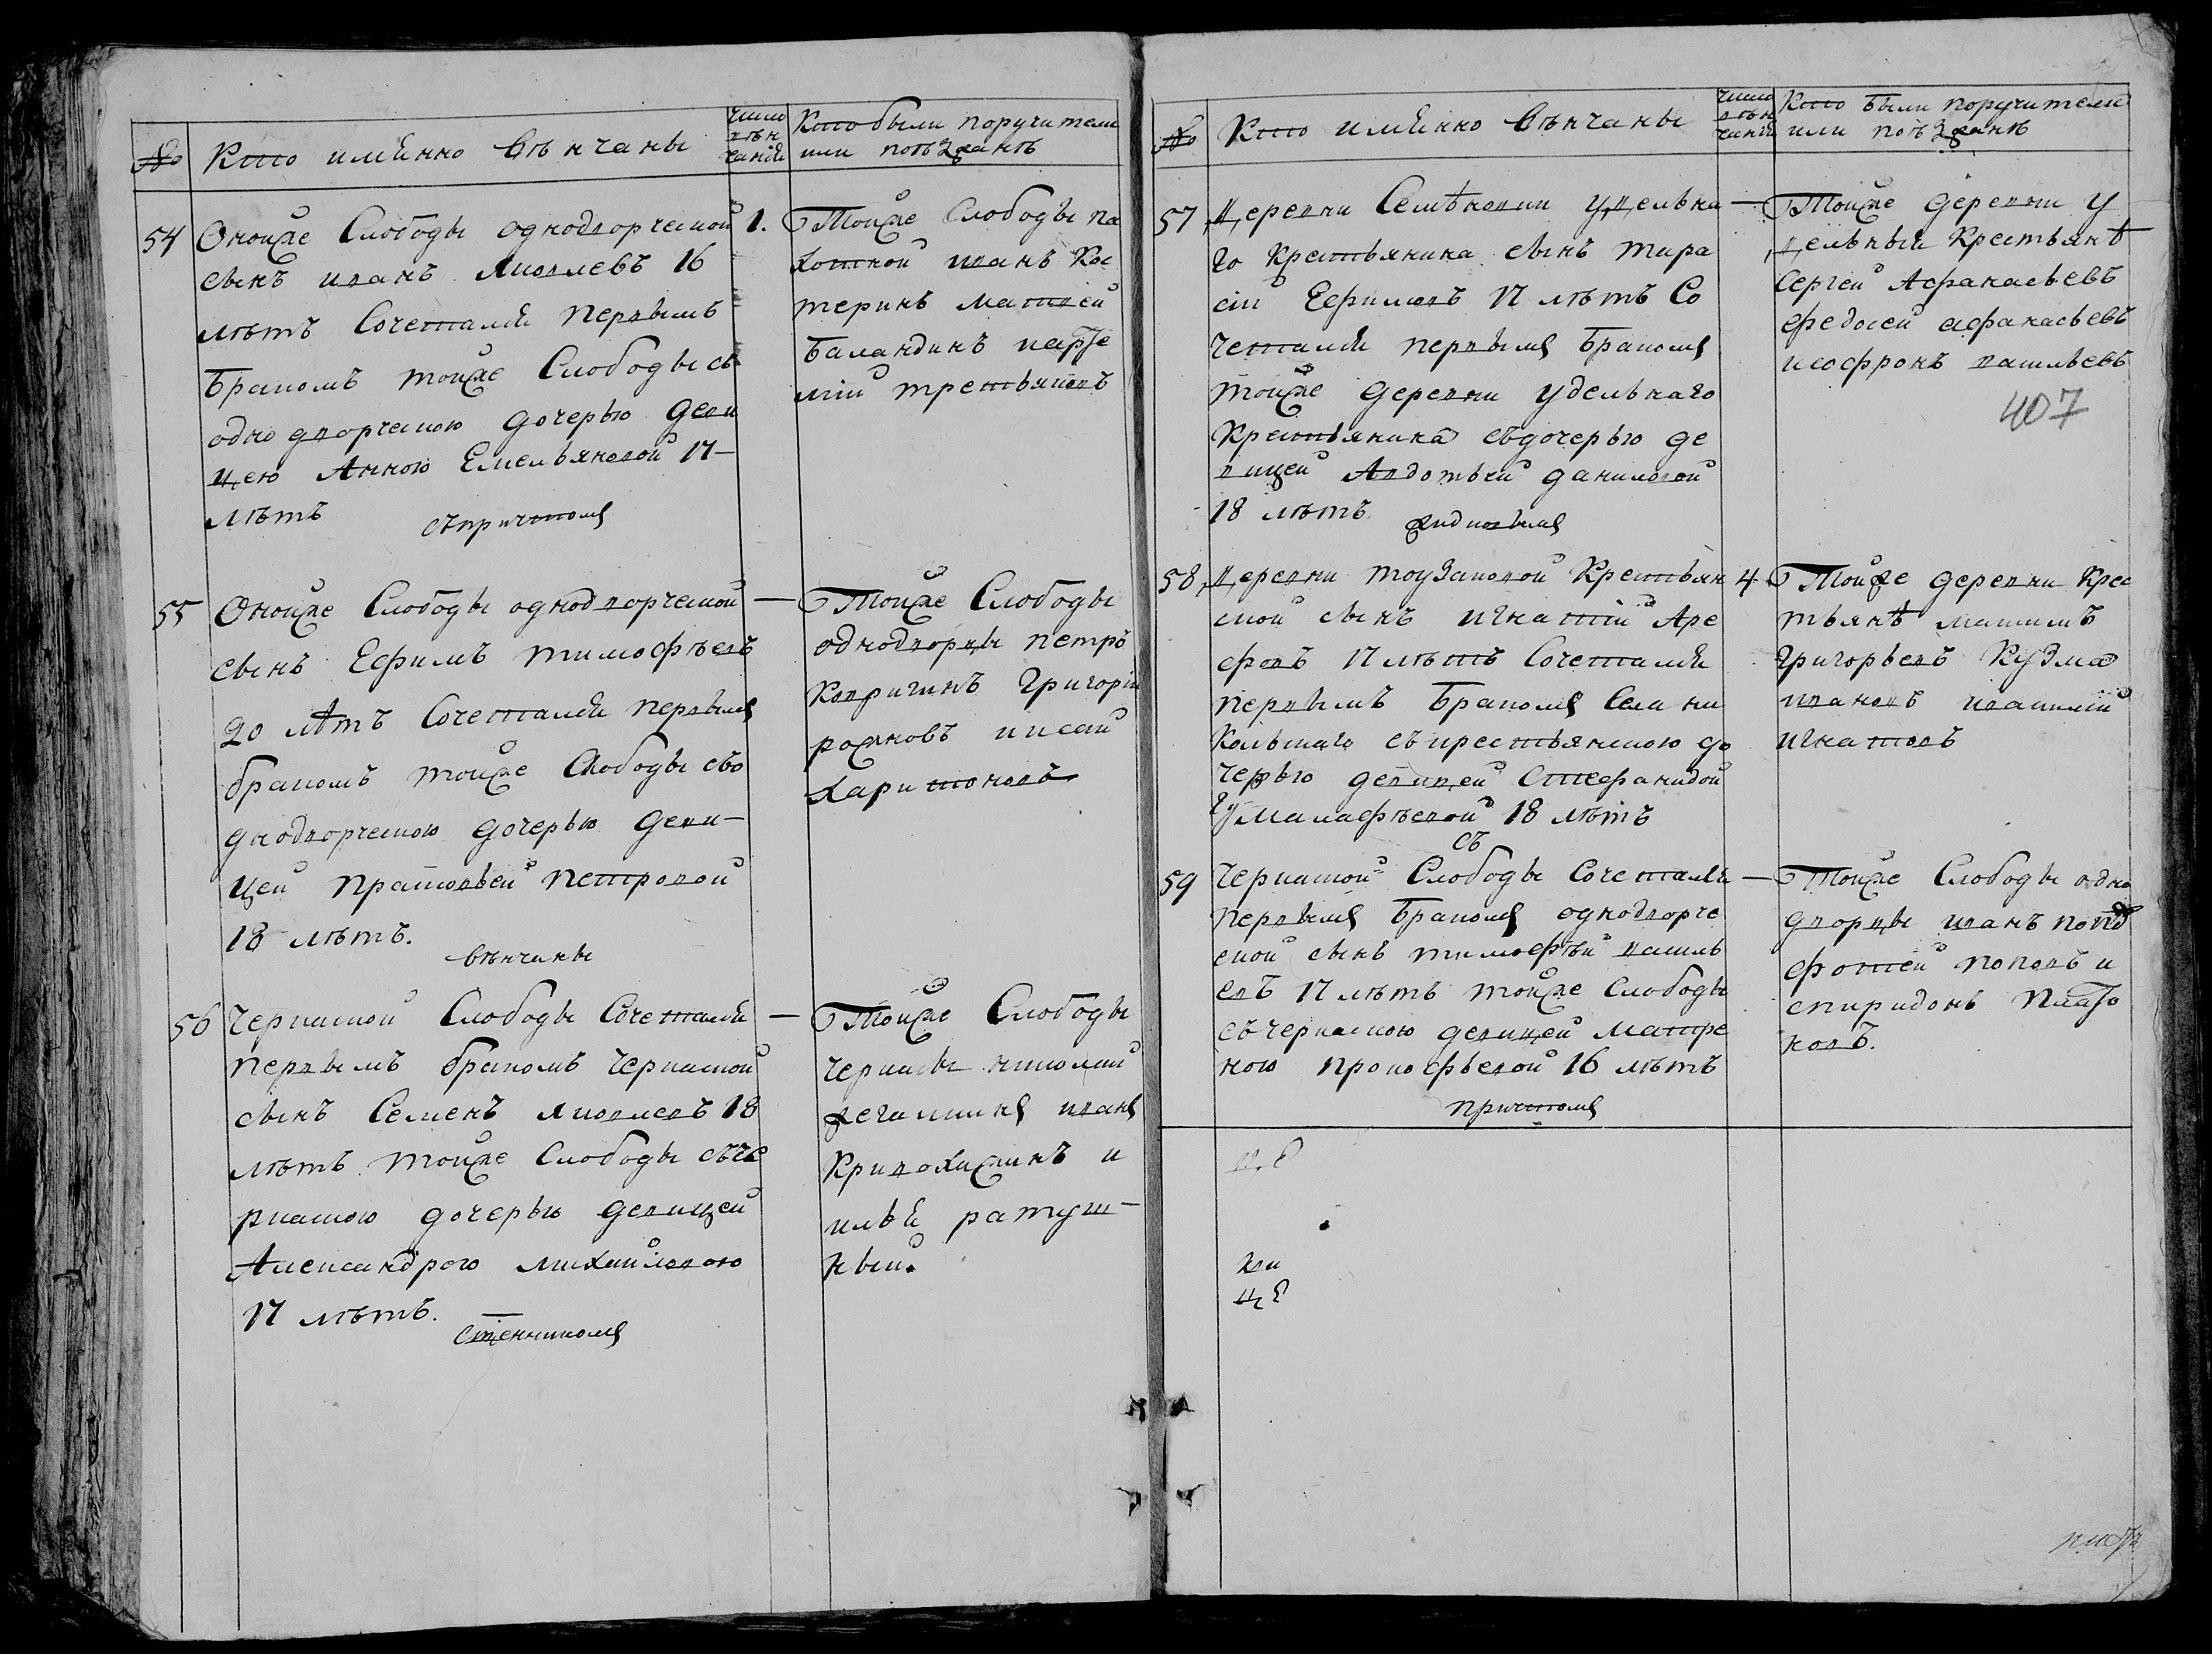 №
Кто имянно венчаны
числ
вѣн
чанiя
Кто были поручители
или поѣзжанѣ
54
Оноиже Слободы однодворческой
сынъ иванъ Яковлевъ 16
лѣтъ Сочетался первымъ
бракомъ тоиже Слободы съ
однодворческою дочерью деви
цею Анною Емельяновой 17
лѣтъ
съпричтомъ
1.
Тоиже Слободы па
хотной иванъ Кос
теринъ матвеи
Баландинъ ипарфе
мiи третьяковъ
55
Оноиже Слободы однодворческой
сынъ Ефимъ тимофѣевъ
20 лѣтъ Сочетался первымъ
бракомъ тоиже Слободы съо
днодворческою дочерью деви
цеи прасковьеи петровой
18 лѣтъ.
вѣнчаны
—
Тоиже Слободы
однодворцы петръ
Ковригинъ григорiи
рожновъ иисаи
Харитоновъ
56
Черкаской Слободы Сочетался
первымъ бракомъ черкаской
сынъ Семенъ яковлевъ 18
лѣтъ тоиже Слободы съче
ркаскою дочерью девицеи
Александрою михаиловою
17 лѣтъ.
Стѣнникомъ
—
Тоиже Слободы
черкасы николаи
иванъ
Кривохижинъ и
илья ратуш
ныи.
№
Кто имянно вѣнчаны
числ
вѣн
чанiя
Кто были поручители
или поѣзжанѣ
57
Деревни Семѣновки удельна
го Крестьянина сынъ тара
сiи Ефимовъ 17 лѣтъ Со
четался первымъ бракомъ
тоиже деревни удельнаго
Крестьянина съдочерью де
вицеи Авдотьеи даниловой
18 лѣтъ.
—
Тоиже деревни у
дельныи Крестьянѣ
Сергеи Афанасьевъ
федосеи афанасьевъ
исофронъ васильевъ
407
58
Деревни тоузаковой Крестьян
скои сынъ игнатiи Аре
февъ 17 лѣтъ Сочетался
первымъ бракомъ Села ни
Кольшаго съкрестьянскою до
черью девицеи Стефанидой
малафѣевой 18 лѣтъ
съ
4
Тоиже деревни Крес
тьянѣ максимъ
григорьевъ Кузма
ивановъ ивасилiи
игнатовъ
59
Черкаской Слободы Сочетался
первымъ бракомъ однодворче
скои сынъ тимофѣи василь
евъ 17 лѣтъ тоиже Слободы
съчеркаскою девицеи матре
ною прокофьевой 16 лѣтъ
причтомъ
—
Тоиже Слободы одно
дворцы иванъ попо
фотеи поповъ и
спиридонъ плато
новъ.